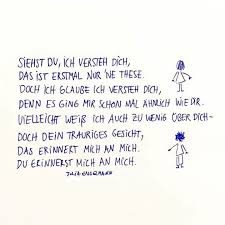 SIEHST DU, ICH VERSTEH DICH,
DAS IST ERSTMAL NUR 'NE THESE.
DOCH ICH GLAUBE ICH VERSTEH DICH,
DENN ES GING MIR SCHON MAL ÄHNLICH WIE DIR.
VIELLEICHT WEIẞ ICH AUCH ZU WENIG ÜBER DICH–
DOCH DEIN TRAURIGES GESICHT,
DAS ERINNERT MICH AN MICH.
DU ERINNERST MICH AN MICH.
JULIA ENGELMANN